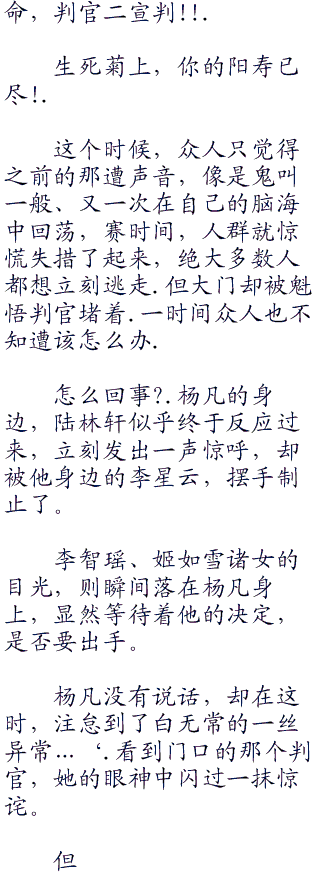 命，判官二宣判!!.
生死菊上，你的阳寿已
尽!.
这个时候，众人只觉得
之前的那遭声音，像是鬼叫
一般、又一次在自己的脑海
中回荡，赛时间，人群就惊
慌失措了起来，绝大多数人
都想立刻逃走.但大门却被魁
悟判官堵着.一时间众人也不
知遭该怎么办.
怎么回事?.杨凡的身
边，陆林轩似乎终于反应过
来，立刻发出一声惊呼，却
被他身边的李星云，摆手制
止了。
李智瑶、姬如雪诸女的
目光，则瞬间落在杨凡身
上，显然等待着他的决定，
是否要出手。
杨凡没有说话，却在这
时，注怠到了白无常的一丝
异常...‘.看到门口的那个判
官，她的眼神中闪过一抹惊
诧。
但